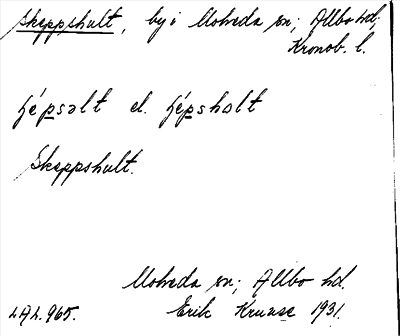 Skeppshult, by i Moheda sn; Allbo hd,
Kronob. l.
ɧépsəlt el. ɧépshəlt
Skeppshult.
Moheda sn; Allbo hd.
LAL. 965. Erik Kruuse 1931.